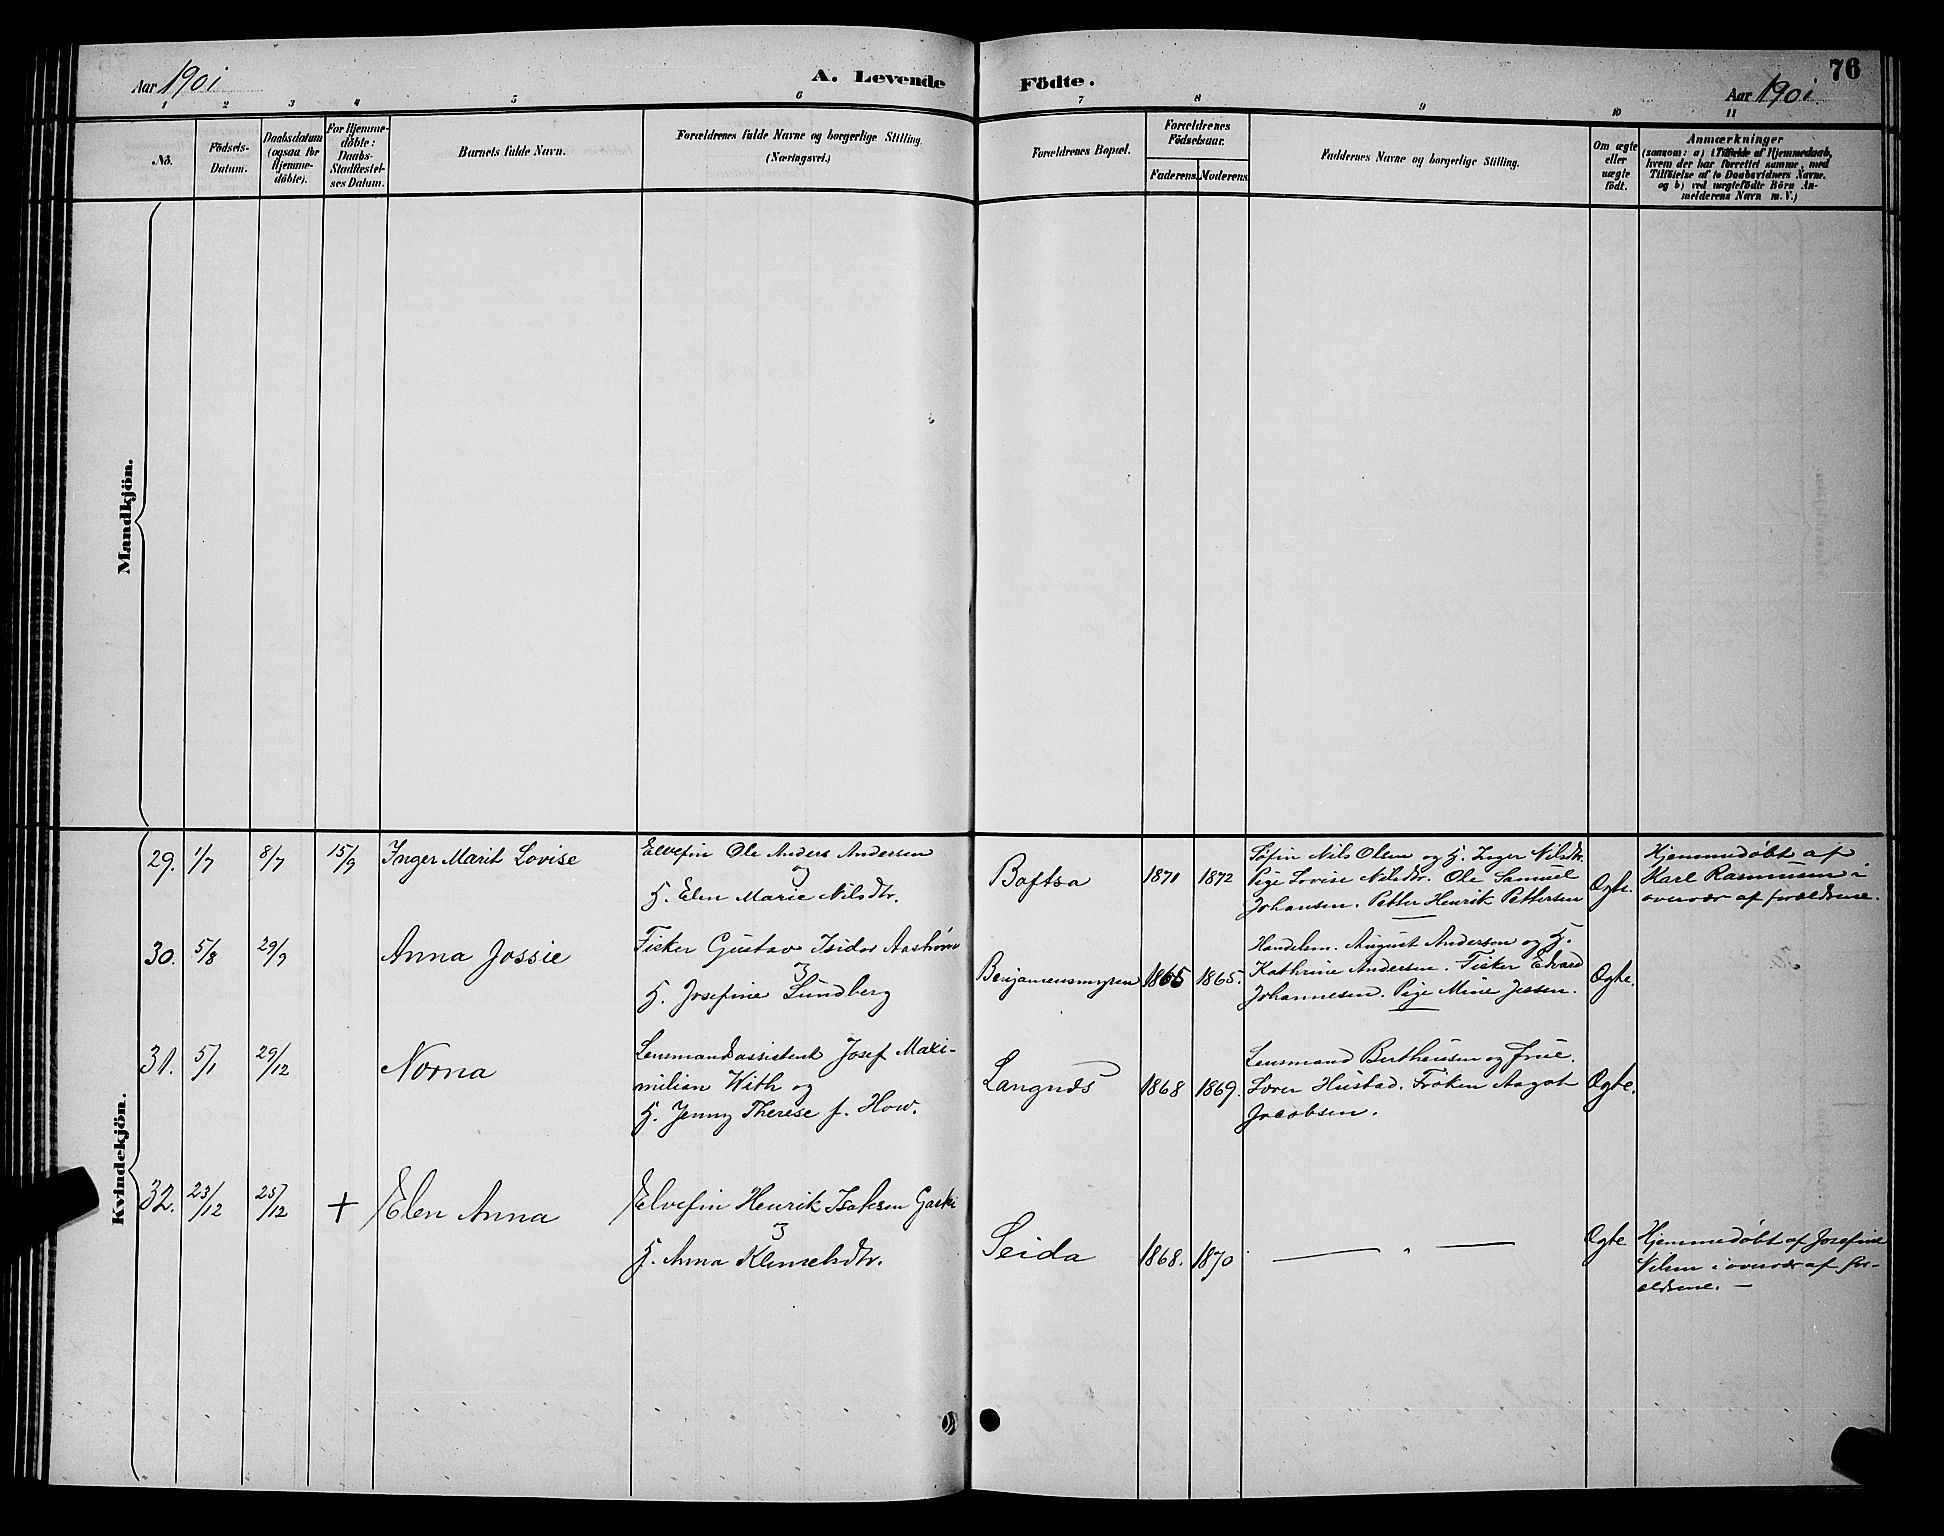 Aar 1901
A. Levende Födte.
Aar 1901
76
1 2 3 4 5 6 7 8 9 10 11
No.
Födsels-
Datum.
Daabsdatum
(ogsaa for
Hjemme-
döbte).
For Hjemme-
döbte:
Daabs-
Stadfæstel-
ses Datum.
Barnets fulde Navn.
Forældrenes fulde Navne og borgerlige Stilling.
(Næringsvei.)
Forældrenes Bopæl.
Forældrenes
Födselsaar.
Faderens. Moderens.
Faddernes Navne og borgerlige Stilling.
Om ægte
eller
uægte
födt.
Anmærkninger
(saasom: a) i Tilfælde af Hjemmedaab,
hvem der har forrettet samme, med
Tilföielse af to Daabsvidners Navne.
og b) ved uægtefödte Börn An-
melderens Navn m. V.)
Mandkjön.
Kvindekjön.
29. 1/7 8/7 15/9 Inger Marit Lovise
Elvefin Ole Anders Andersen
og
H. Elen Marie Nilsdtr.
Boftsa 1871 1872
Søfin Nils Olsen og H. Inger Nilsdtr.
Pige Lovise Nilsdtr. Ole Samuel
Johansen. Petter Henrik Pettersen
Ægte.
Hjemmedøbt af
Karl Rasmussen i
overvær af forældrene.
30. 5/8 29/9 Anna Jossie
Fisker Gustav Isidor Aastrøm
H. Josefine Lundberg
Benjamensmyren 1865 1865.
Handelsm. August Andersen og H.
Kathrine Andersen. Fisker Edvard
Johannesen. Pige Mine Jessen.
Ægte.
31. 5/1 29/12 Norna
Lensmandsassistent Josef Maxi-
milian With og
H. Jenny Therese f. How.
Langnæs 1868 1869.
Lensmand Bertheusen og Frue.
Lærer Hustad. Frøken Aagot
Jacobsen.
Ægte.
32. 23/12 25/12 + Elen Anna
Elvefin Henrik Isaksen Gaski
H. Anna Klemetsdtr.
Seida 1868. 1870
— „ —
Ægte
Hjemmedøbt af Josefine
Nilsen i overvær af for-
ældrene. —